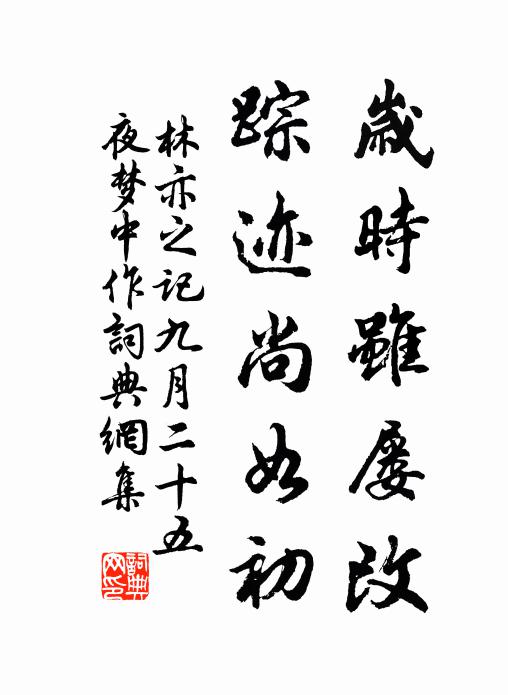 歲時雖屡改
踪迹尚如初
林亦之记九月二十五
夜梦中作詞典網集
詞典
网印